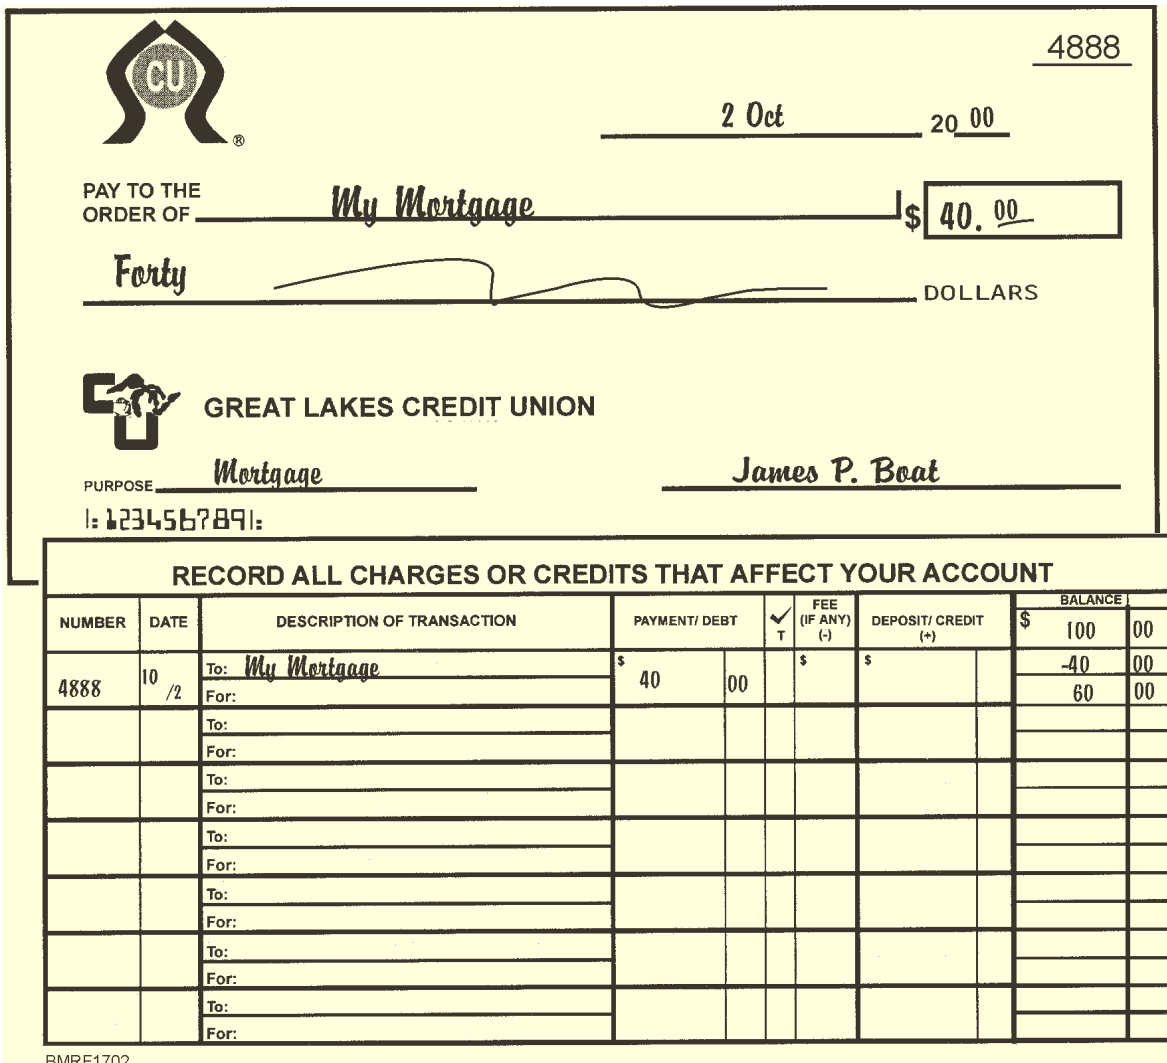 4888
CU
®
2 Oct 20 00
PAY TO THE
ORDER OF My Mortgage $ 40. 00
Forty DOLLARS
GREAT LAKES CREDIT UNION
PURPOSE Mortgage James P. Boat
|: 123456789|:
RECORD ALL CHARGES OR CREDITS THAT AFFECT YOUR ACCOUNT
NUMBER DATE DESCRIPTION OF TRANSACTION PAYMENT/ DEBT ✓ T FEE (IF ANY) (-) DEPOSIT/ CREDIT (+) BALANCE
$ 100 00
4888 10/2 To: My Mortgage $ 40 00 $ $ -40 00
For: 60 00
To:
For:
To:
For:
To:
For:
To:
For:
To:
For:
To:
For:
BMRF1702